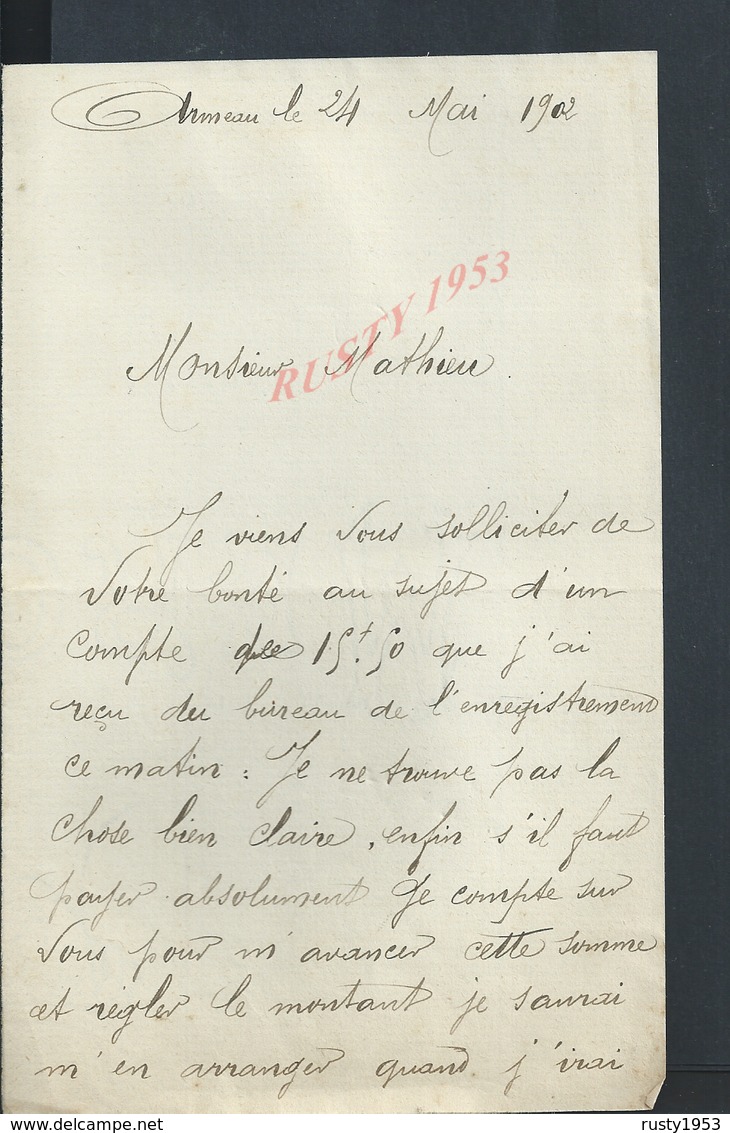 Armeau le 24 Mai 1902
RUSTY 1953
Monsieur Mathieu
Je viens vous solliciter de
votre bonté au sujet d'un
compte de 15f.50 que j'ai
reçu du bureau de l'enregistrement
ce matin : Je ne trouve pas la
chose bien claire, enfin s'il faut
payer absolument Je compte sur
vous pour m'avancer cette somme
et régler le montant je saurai
m'en arranger quand j'irai
delcampe.net
rusty1953